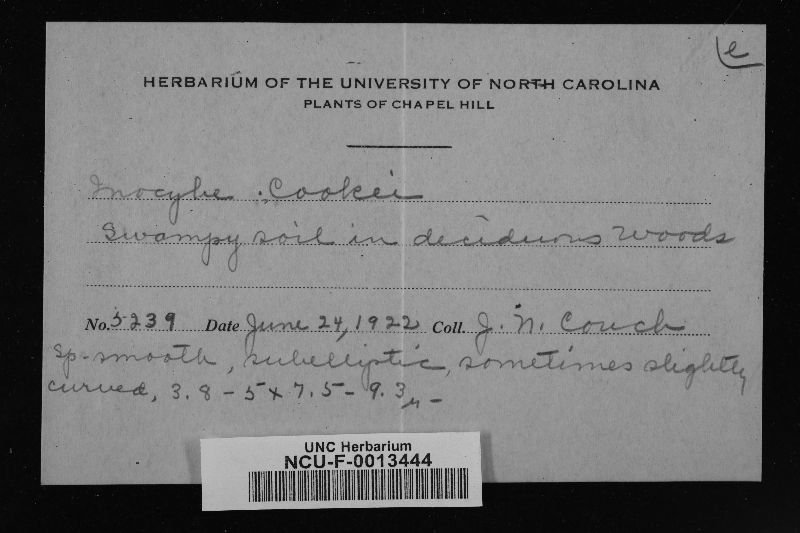 e
HERBARIUM OF THE UNIVERSITY OF NORTH CAROLINA
PLANTS OF CHAPEL HILL
Inocybe Cookei
Swampy soil in deciduous woods
No. 5239 Date June 24, 1922 Coll. J. N. Couch
Sp. smooth, subelliptic, sometimes slightly
curved, 3.8 - 5 x 7.5 - 9.3 µ -
UNC Herbarium
NCU-F-0013444